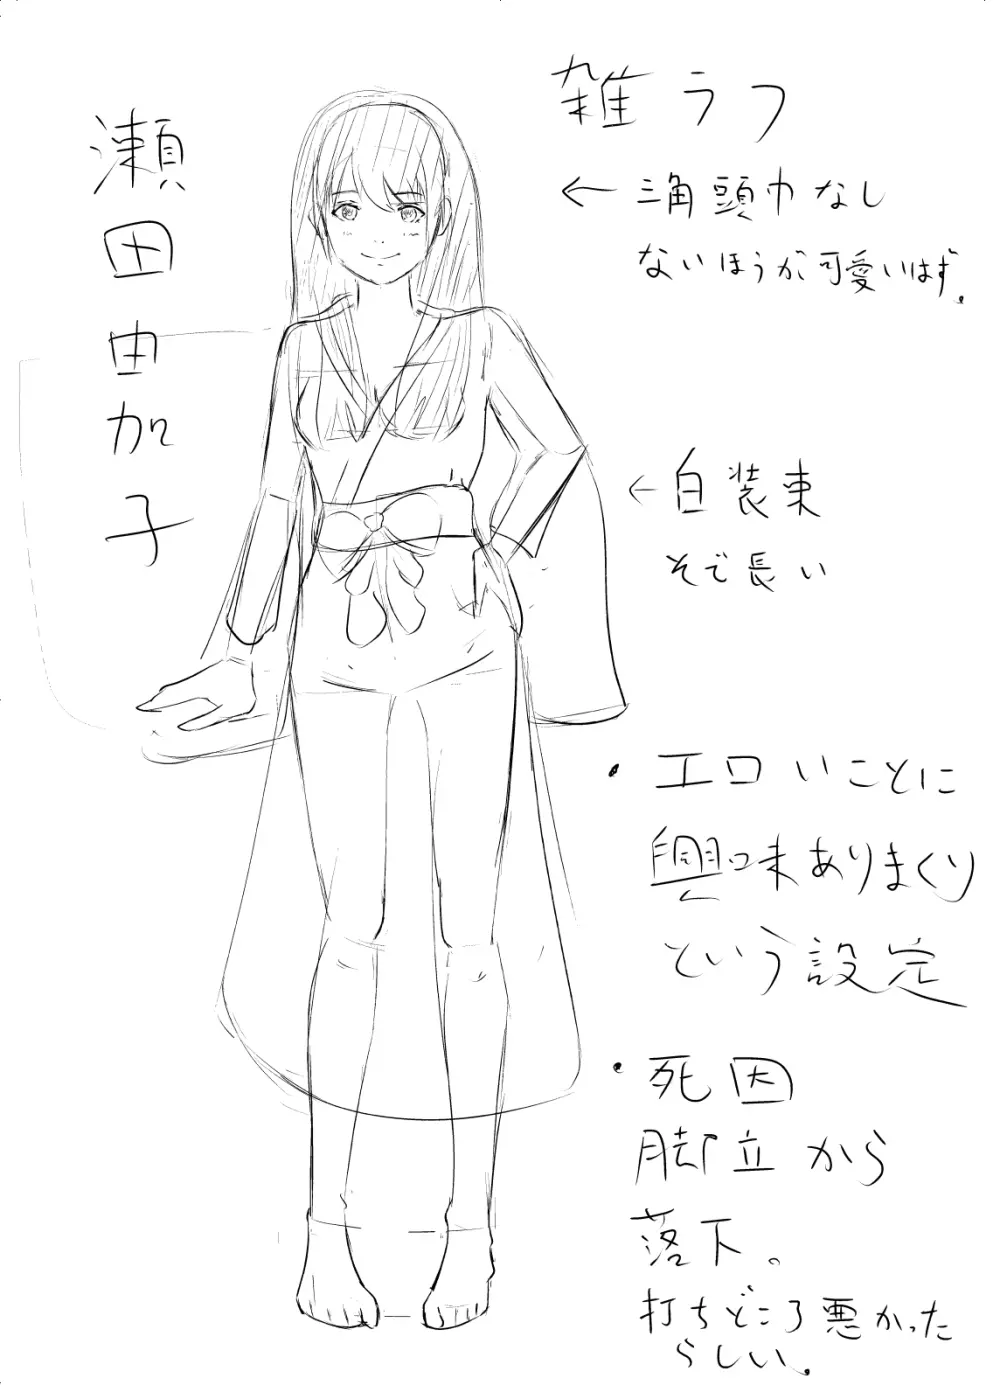 瀬田由加子
雑ラフ
← 三角頭巾なし
ないほうが可愛いはず.
← 白装束
そで長い
・エロいことに
興味ありまくり
という設定
・死因
脚立から
落下。
打ちどころ悪かった
らしい.